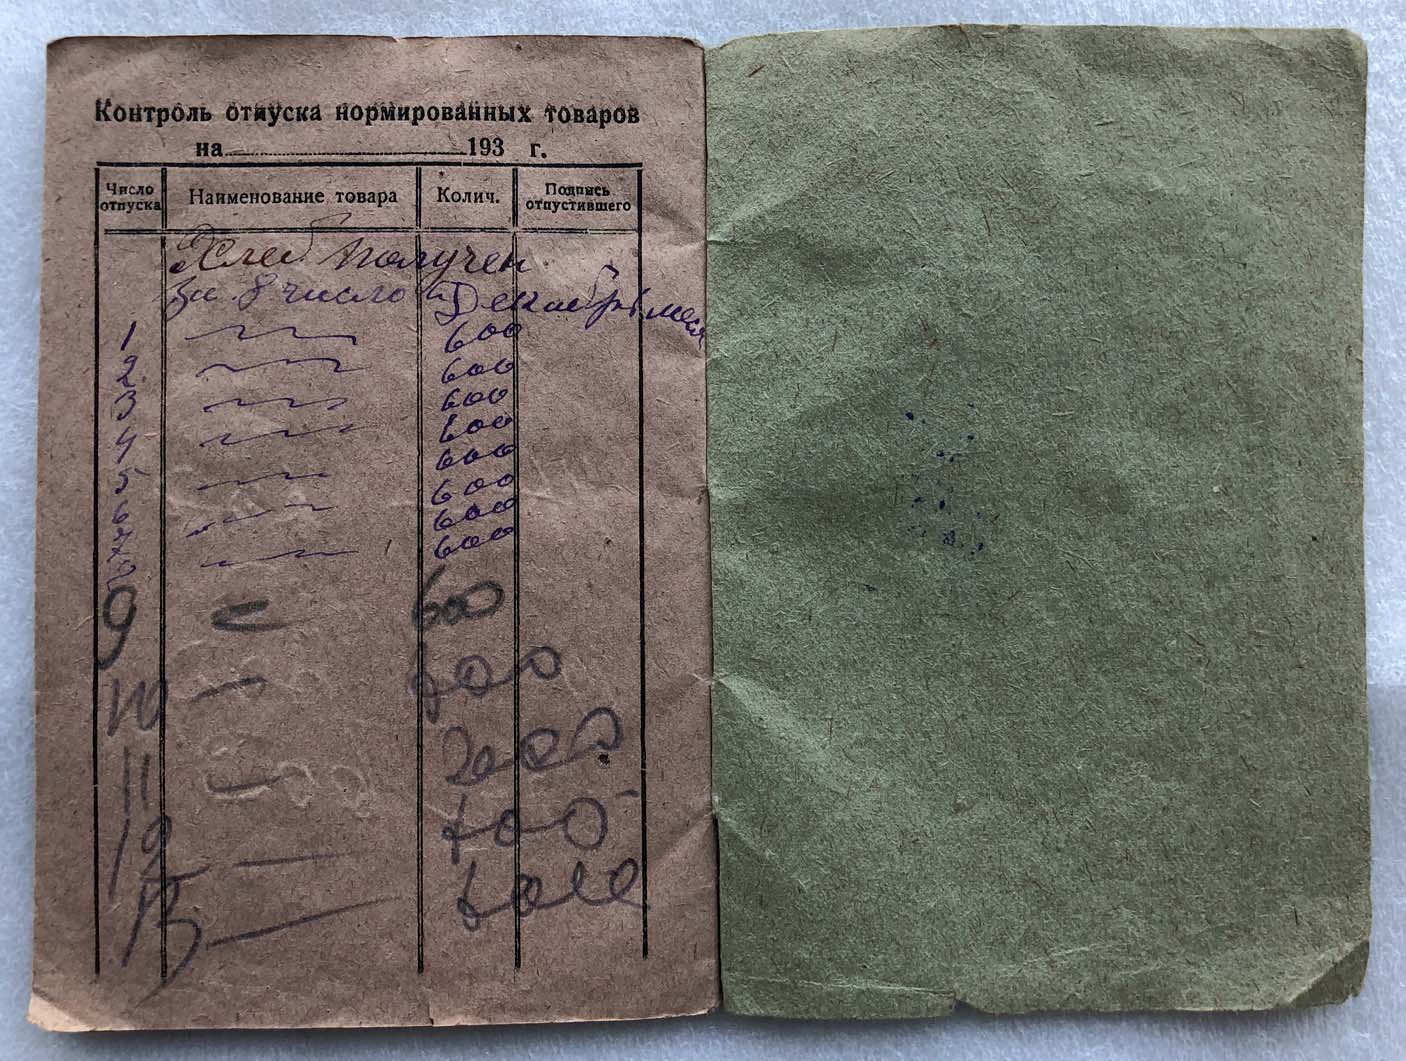 Контроль отпуска нормированных товаров
на 193 г.
Число отпуска Наименование товара Колич. Подпись отпустившего
Хлеб получен
за 8 число Декабря меся
1 600
2 600
3 600
4 600
5 600
6 600
7 600
8 600
9 600
10 600
11
12